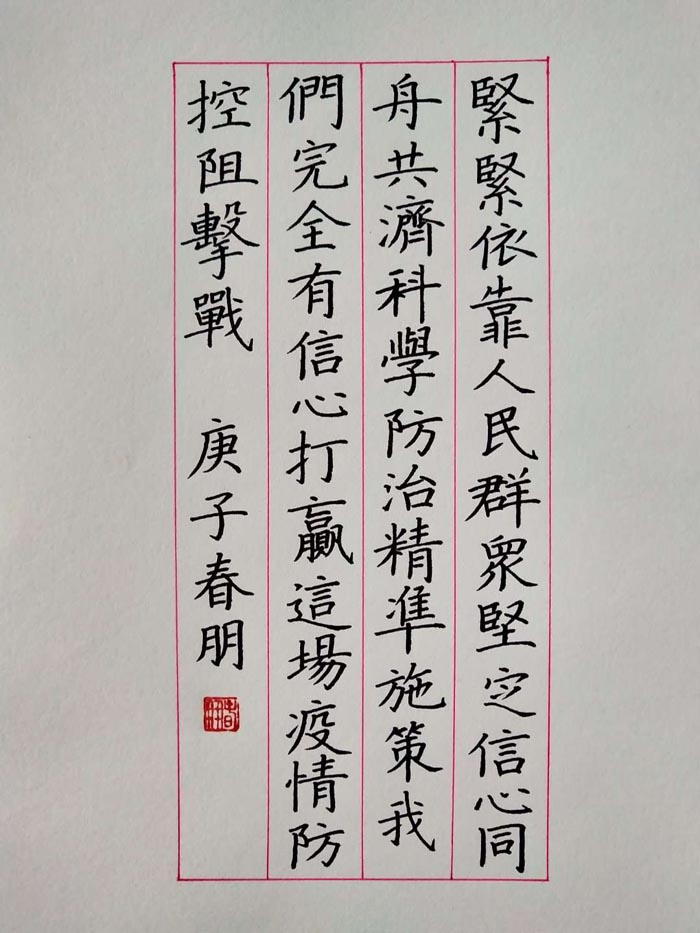 緊緊依靠人民群眾堅定信心同
舟共濟科學防治精準施策我
們完全有信心打贏這場疫情防
控阻擊戰 庚子春朋